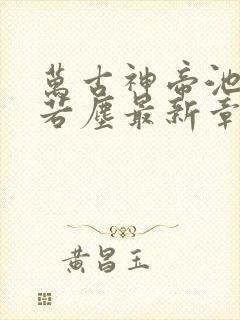 萬古神帝池
若塵最新章
黃昌玉